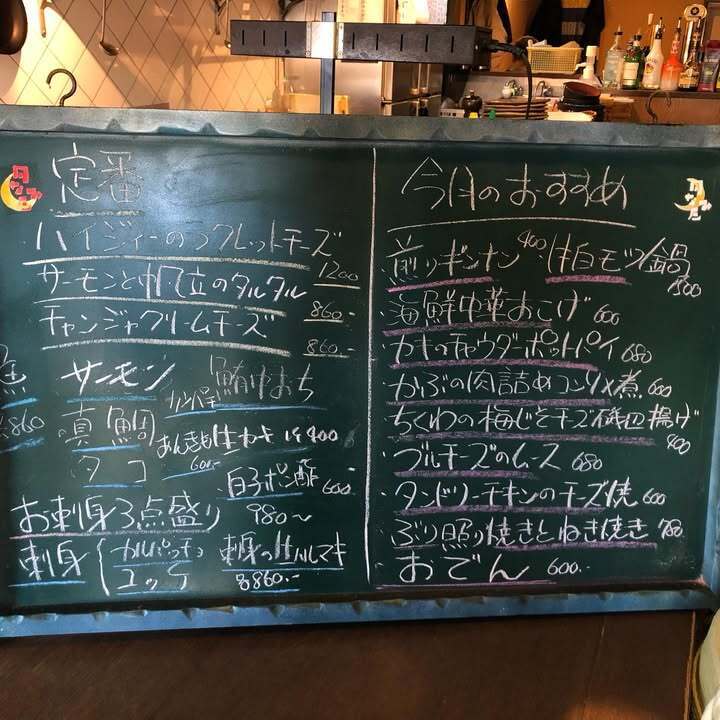 定番
ハイジィーのラクレットチーズ
1200
サーモンと帆立のタルタル
860.-
チャンジャクリームチーズ
860.-
魚 サーモン 鮪中おち
860 カンパチ
真鯛 あんきも 生カキ 1ヶ400
タコ 600- 白子ポン酢 600
お刺身3点盛り 980〜
刺身 カルパッチョ 刺身の生ハルマキ
ユッケ 各860.-
今月のおすすめ
煎りギンナン 400 モツ鍋
1500
・海鮮中華おこげ 600
・カキのチャウダーポットパイ 680
・かぶの肉詰めコンソメ煮 600
・ちくわの梅じそチーズ磯辺揚げ
400
・ブルーチーズのムース 680
・タンドリーチキンのチーズ焼 600
・ぶり照り焼きとねぎ焼き 780
・おでん 600.-